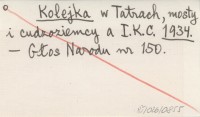 Kolejka w Tatrach, mosty
i cudzoziemcy a I.K.C. 1934.
— Głos Narodu nr 150.